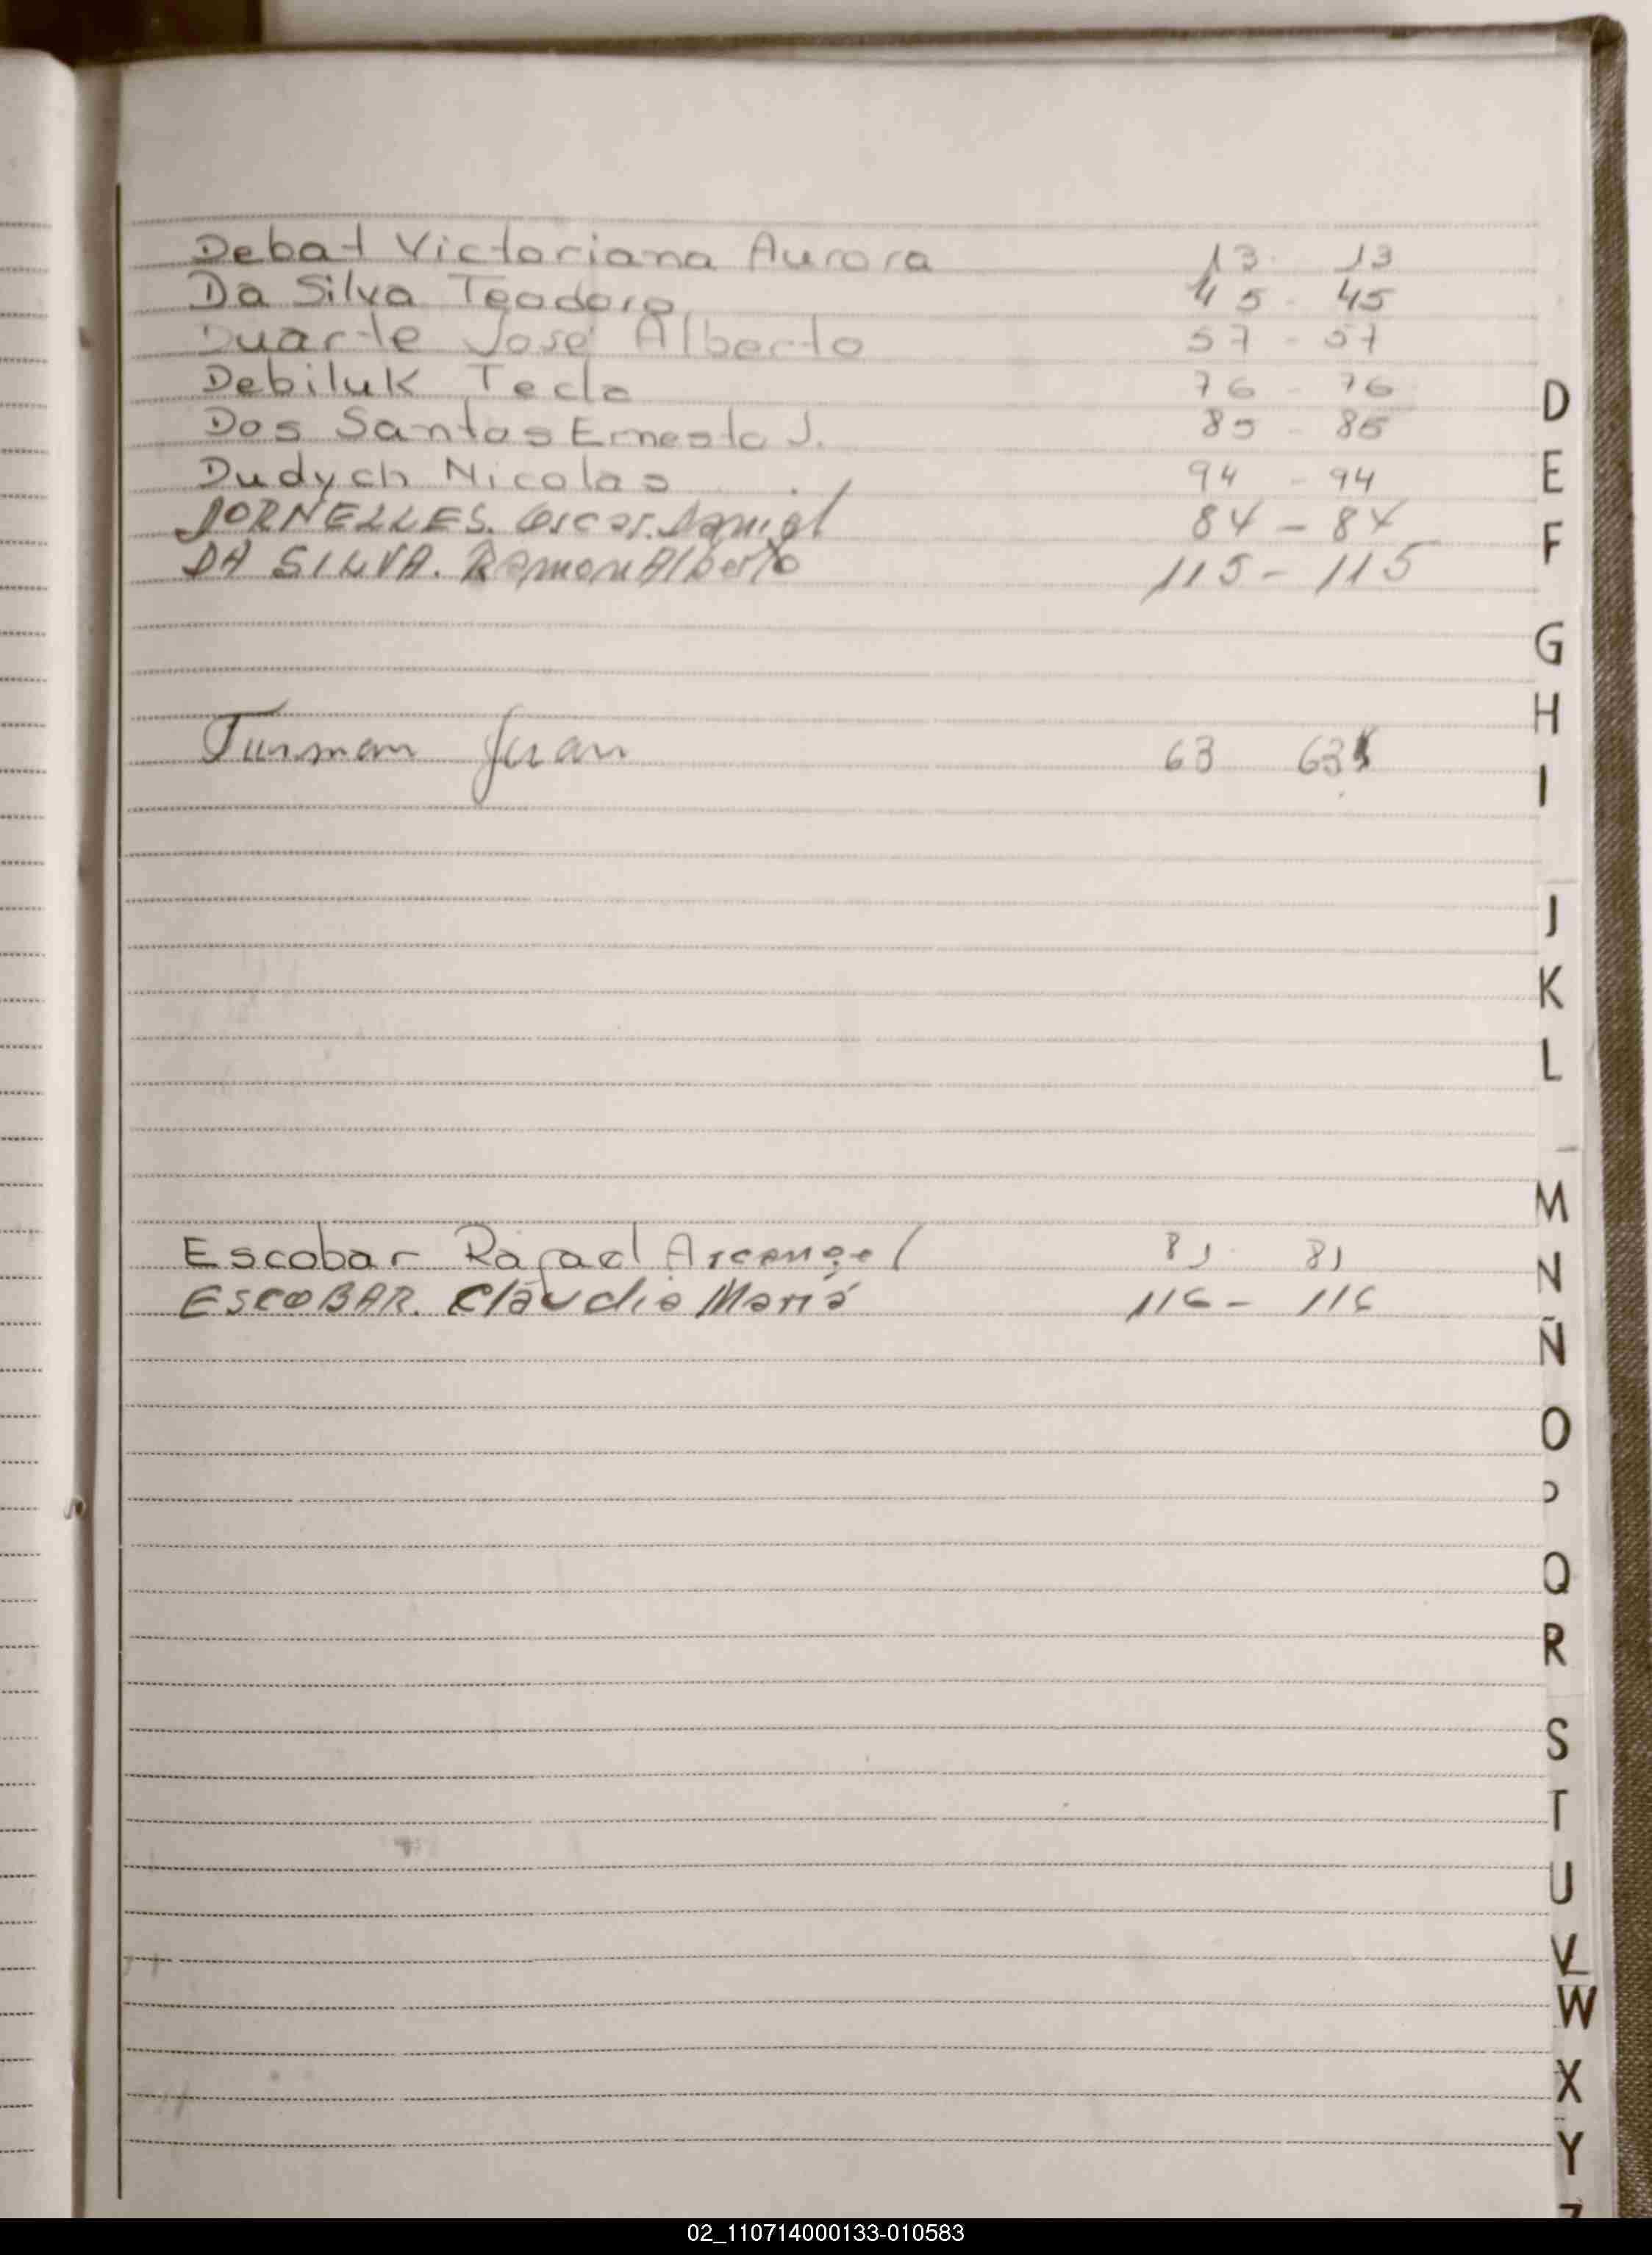 Debat Victoriana Aurora 13 - 13
Da Silva Teodoro 45 - 45
Duarte José Alberto 57 - 57
Debiluk Tecla 76 - 76
Dos Santos Ernesto J. 85 - 85
Dudych Nicolas 94 - 94
DORNELLES. Oscar. Daniel 84 - 84
DA SILVA. Ramon Alberto 115 - 115
Juan 63 63
Escobar Rafael Arcangel 81 - 81
ESCOBAR. Claudia María 116 - 116
D
E
F
G
H
I
J
K
L
M
N
Ñ
O
P
Q
R
S
T
U
V
W
X
Y
Z
02_110714000133-010583